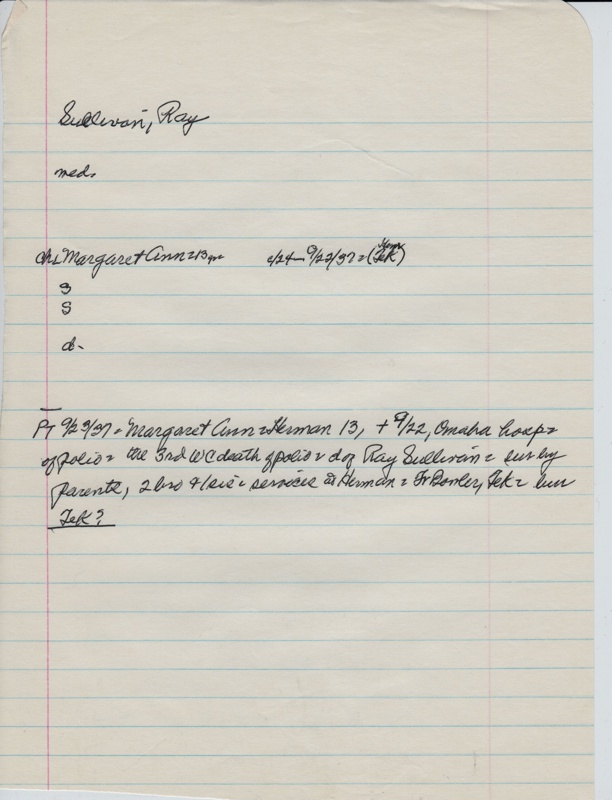 Sullivan, Ray
med.
ch: Margaret Ann = 13 yr c/24 - 9/22/37 = (Herm Tek)
s
s
d -
PT 9/23/37 = Margaret Ann = Herman 13, + 9/22, Omaha hosp =
of polio = the 3rd WC death of polio = d of Ray Sullivan = sur by
parents, 2 bro & 1 sis = services at Herman = Fr Bowler, Tek = bur
Tek?